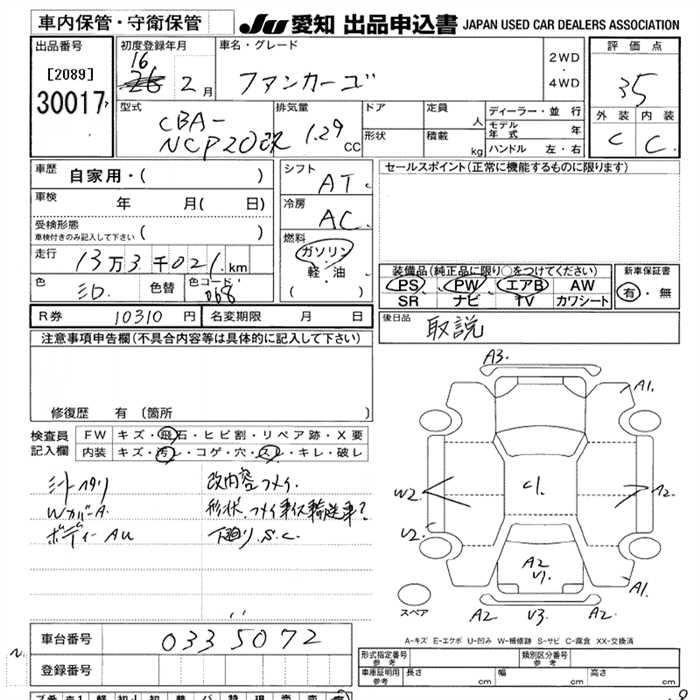 車内保管・守衛保管
JU 愛知 出品申込書 JAPAN USED CAR DEALERS ASSOCIATION
出品番号
[2089]
30017
初度登録年月
16
2 月
車名・グレード
ファンカーゴ
2WD
・
4WD
評価点
35
外装 内装
C C
型式
CBA-
NCP20改
排気量
1.29
CC
ドア
形状
定員
人
積載
kg
ディーラー・並行
モデル年式 年
ハンドル 左・右
車歴
自家用・( )
車検
年 月( 日)
受検形態
車検付きのみ記入して下さい ( )
走行
13万3千021 km
色
色替
色コード
068
シフト
AT
冷房
AC
燃料
ガソリン
・
軽・油
( )
セールスポイント(正常に機能するものに限ります)
装備品(純正品に限り○をつけてください)
PS PW エアB AW
SR ナビ TV カワシート
新車保証書
有・無
R券 10310 円
名変期限 月 日
後日品
取説
注意事項申告欄(不具合内容等は具体的に記入して下さい)
修復歴 有 〔箇所 〕
検査員
記入欄
FW キズ・飛石・ヒビ割・リペア跡・X要
内装 キズ・汚レ・コゲ・穴・スレ・キレ・破レ
シートヘタリ
WカバーA
ボディーAU
改内容フメイ
形状フメイ車イス輸送車?
下廻りS.C
A3
A1
W2
U2
C1
A2
A2
V1
A1
A2
V3
A2
スペア
A-キズ E-エクボ U-凹み W-補修跡 S-サビ C-腐食 XX-交換済
車台番号
0335072
登録番号
形式指定番号
参考
類別区分番号
参考
車庫証明用
参考
長さ cm
幅 cm
高さ cm